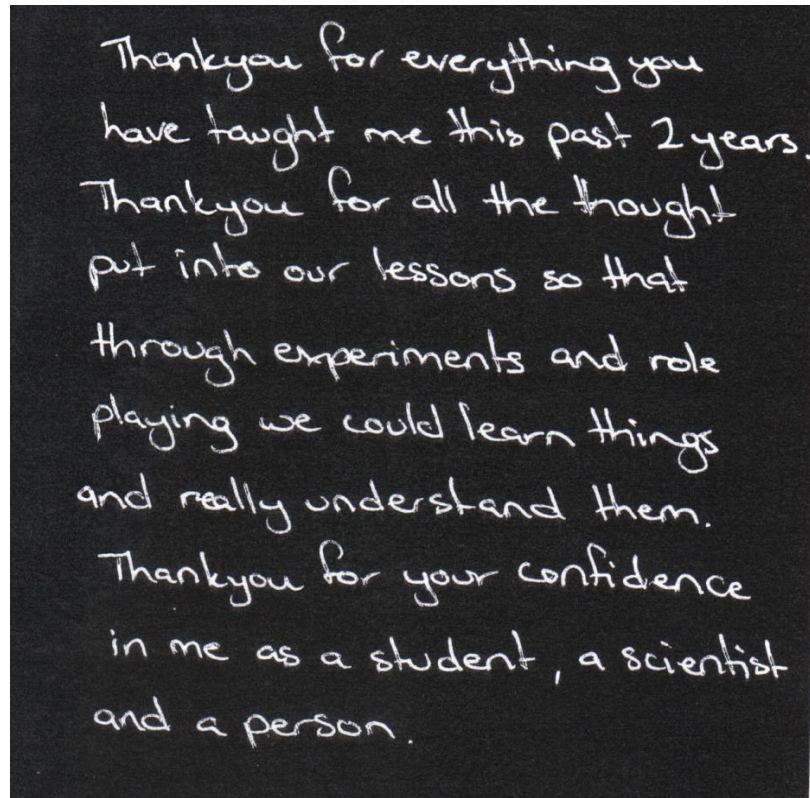 Thankyou for everything you
have taught me this past 2 years.
Thankyou for all the thought
put into our lessons so that
through experiments and role
playing we could learn things
and really understand them.
Thankyou for your confidence
in me as a student, a scientist
and a person.